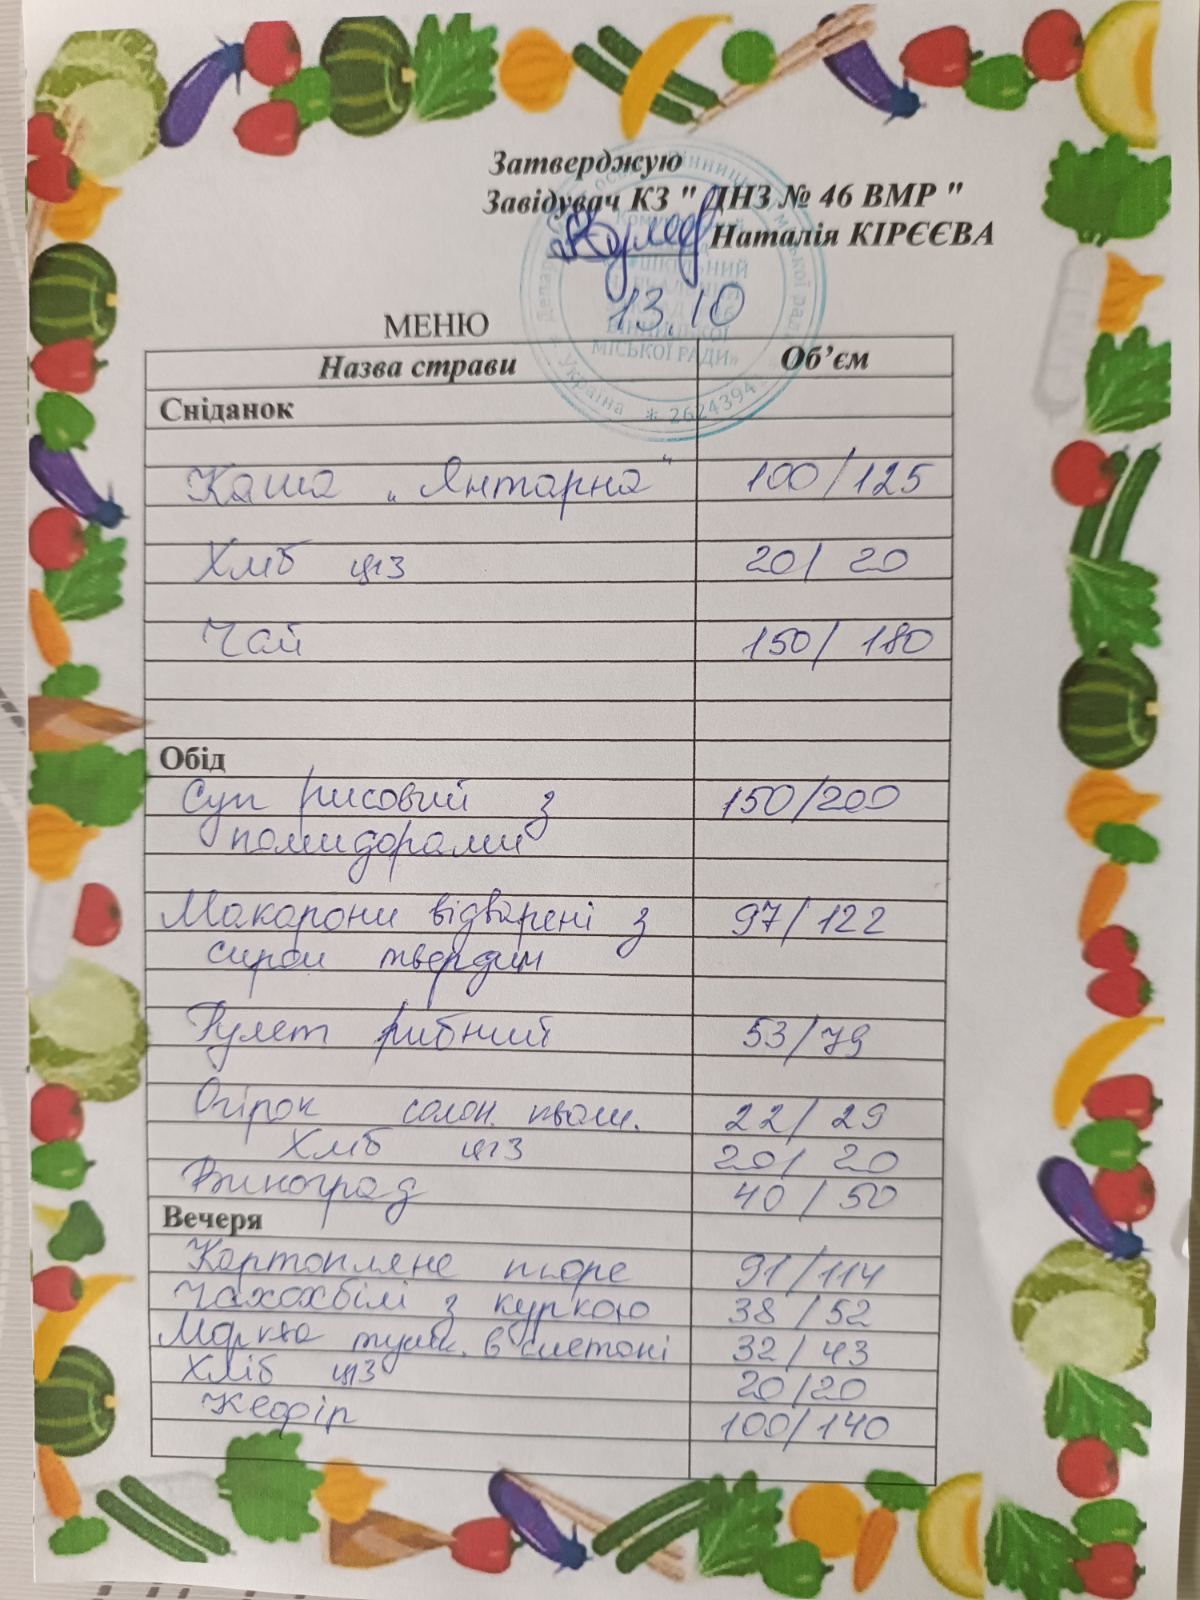 Затверджую
Завідувач КЗ " ДНЗ № 46 ВМР "
Наталія КІРЄЄВА
13.10
МЕНЮ
Назва страви Об’єм
Сніданок
Каша „Янтарна“ 100/125
Хліб цз 20/ 20
Чай 150/ 180
Обід
Суп рисовий з 150/200
помидорами
Макарони відварені з 97/122
сиром твердим
Рулет рибний 53/79
Огірок солон. 22/29
Хліб цз 20/ 20
Виноград 40/50
Вечеря
Картопляне пюре 91/114
Чахохбілі з куркою 38/52
Морква туш. в сметані 32/43
Хліб цз 20/20
Кефір 100/140
МІСЬКОЇ РАДИ»
Україна * 2624394